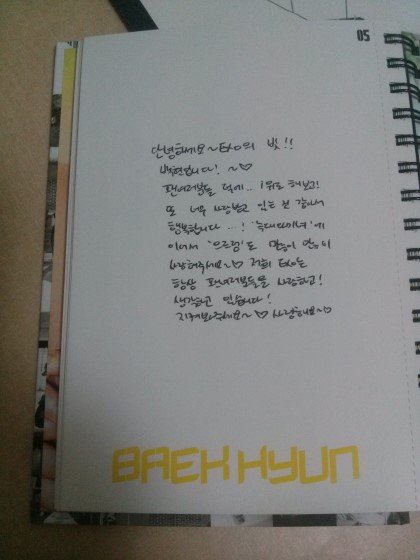 05
안녕하세요~ EXO의 빛!!
백현입니다! ~♡
팬여러분들 덕에.. 1위도 해보고!
또 너무 사랑받고 있는 것 같아서
행복합니다...! '늑대와미녀'에
이어서 '으르렁'도 많이 많이
사랑해주세요~♡ 저희 EXO는
항상 팬여러분들을 사랑하고!
생각하고 있습니다!
지켜봐주세요~♡ 사랑해요~♡
BAEK HYUN